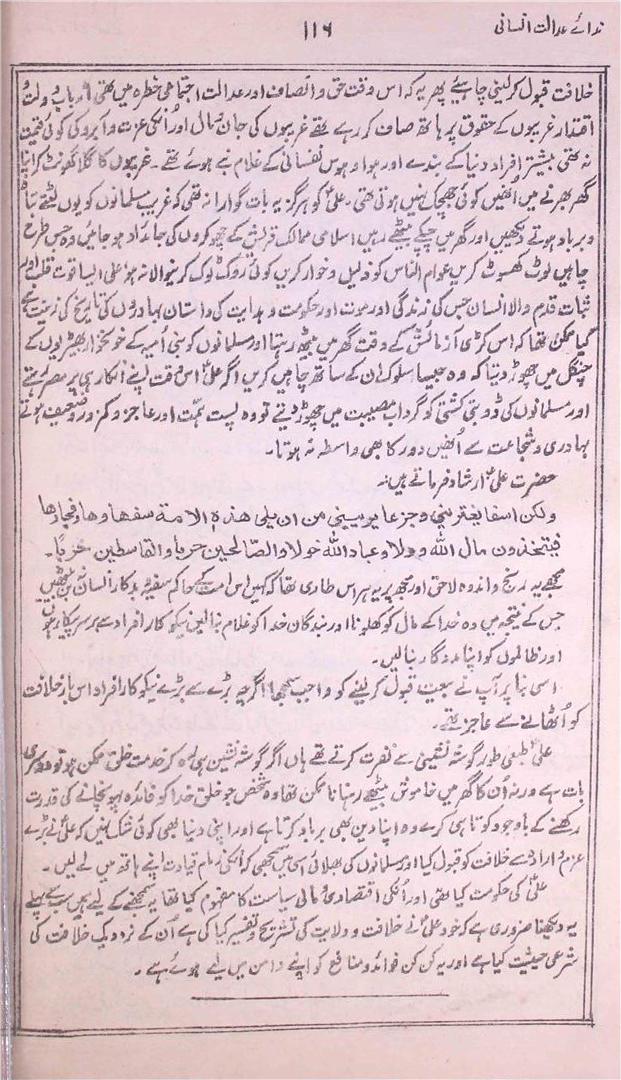 ندائے عدالت انسانی
۱۱۶
خلافت قبول کر لینی چاہیئے پھر یہ کہ اس وقت حق و انصاف اور عدالت اجتماعی خطرہ میں تھی ارباب دولت
اقتدار غریبوں کے حقوق پر ہاتھ صاف کر رہے تھے غریبوں کی جان و مال اور انکی عزت و آبرو کی کوئی قیمت
نہ تھی بیشتر افراد دنیا کے بندے اور ہوا و ہوس نفسانی کے غلام بنے ہوئے تھے۔ غریبوں کا گلا گھونٹ کر اپنا
گھر بھرنے میں اُنھیں کوئی جھجک نہیں ہوتی تھی۔ علیؑ کو ہرگز یہ بات گوارا نہ تھی کہ غریب مسلمانوں کو یوں لٹتے تباہ
و برباد ہوتے دیکھیں اور گھر میں چپکے بیٹھے رہیں اسلامی ممالک قریش کے چھوکروں کی جائداد ہو جائیں وہ جس طرح
چاہیں لوٹ کھسوٹ کریں عوام الناس کو ذلیل و خوار کریں کوئی روک ٹوک کرنیوالا نہ ہو علی ایسا قوت قلب اور
ثبات قدم والا انسان جس کی زندگی اور موت اور حکومت و ہدایت کی داستان بہادروں کی تاریخ کی زینت بنے
کیا ممکن تھا کہ اس کڑی آزمائش کے وقت گھر میں بیٹھ رہتا اور مسلمانوں کو بنی اُمیہ کے خونخوار بھیڑیوں کے
چنگل میں چھوڑ دیتا کہ وہ جیسا سلوک ان کے ساتھ چاہیں کریں اگر علیؑ اس وقت اپنے انکار ہی پر مصر رہتے
اور مسلمانوں کی ڈوبتی کشتی کو گرداب مصیبت میں چھوڑ دیتے تو وہ پست ہمت اور عاجز و کمزور و ضعیف ہوتے
بہادری و شجاعت سے اُنھیں دور کا بھی واسطہ نہ ہوتا۔
حضرت علیؑ ارشاد فرماتے ہیں:۔
ولکن اسفا یعترینی وجزعا یریبنی من ان یلی هذه الامة سفهاوها وفجارها
فیتخذون مال الله دولا وعباد الله خولا والصالحین حربا والقاسطین حزبا۔
مجھے یہ رنج و اندوہ لاحق اور مجھ پر یہ ہراس طاری تھا کہ کہیں اس امت کے حاکم سفیہ بدکار انسان نہ بن بیٹھیں
جس کے نتیجہ میں وہ خدا کے مال کو کھلونا اور بندگان خدا کو غلام بنا لیں نیکو کار افراد سے برسرپیکار ہوں
اور ظالموں کو اپنا مددگار بنالیں۔
اسی بنا پر آپ نے بیعت قبول کر لینے کو واجب سمجھا اگرچہ بڑے سے بڑے نیکوکار افراد اس بار خلافت
کو اُٹھانے سے عاجز تھے۔
علیؑ طبعی طور گوشہ نشینی سے نفرت کرتے تھے ہاں اگر گوشہ نشین ہی رہ کر خدمت خلق ممکن ہو تو دوسری
بات ہے ورنہ اُن کا گھر میں خاموش بیٹھے رہنا ناممکن تھا وہ شخص جو خلق خدا کو فائدہ پہونچانے کی قدرت
رکھنے کے باوجود کوتاہی کرے وہ اپنا دین بھی برباد کرتا ہے اور اپنی دنیا بھی کوئی شک نہیں کہ علیؑ نے بڑے
عزم و ارادے سے خلافت کو قبول کیا اور مسلمانوں کی بھلائی اسی میں سمجھی کہ انکی زمام قیادت اپنے ہاتھ میں لے لیں۔
علیؑ کی حکومت کیا تھی اور انکی اقتصادی و مالی سیاست کا مفہوم کیا تھا یہ سمجھنے کے لیے ہمیں سب سے پہلے
یہ دیکھنا ضروری ہے کہ خود علیؑ نے خلافت و ولایت کی تشریح و تفسیر کیا کی ہے اُن کے نزدیک خلافت کی
شرعی حیثیت کیا ہے اور یہ کن کن فوائد و منافع کو اپنے دامن میں لیے ہوئے ہے۔